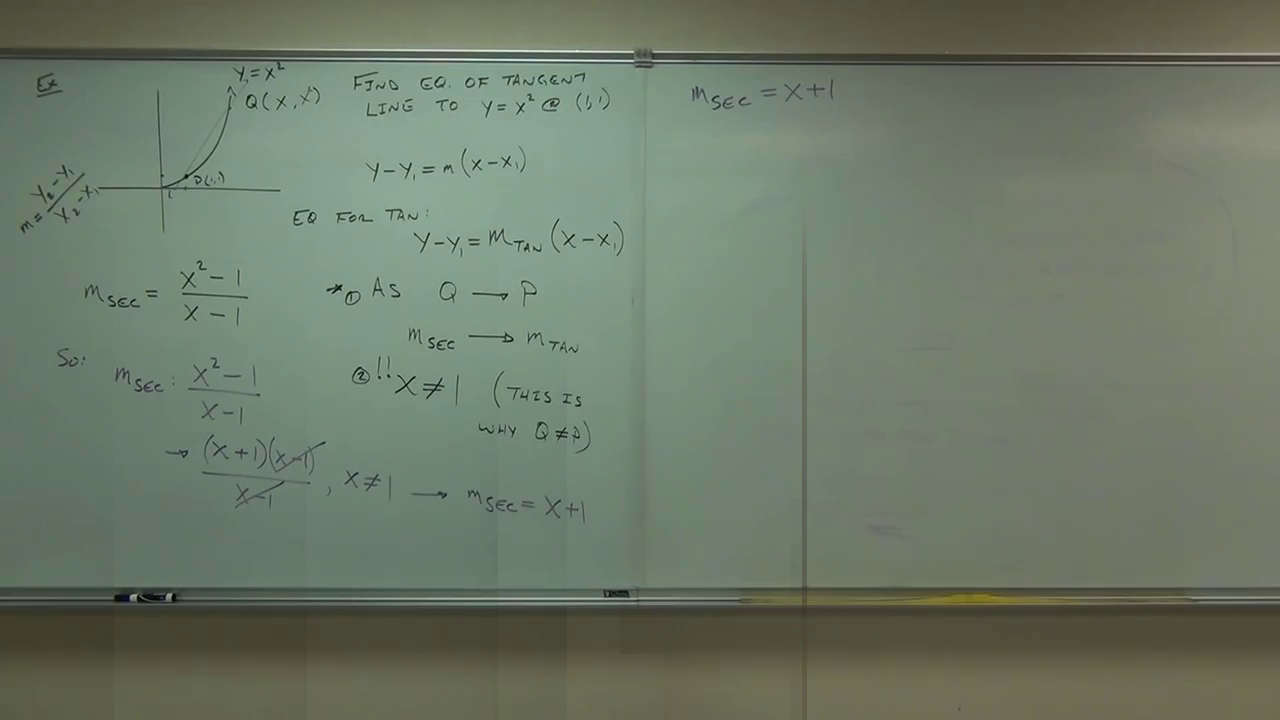 Ex
Y₁ = X²
Q(X, X²)
P(1,1)
1
m = Y₂ - Y₁ / X₂ - X₁
FIND EQ. OF TANGENT
LINE TO Y = X² @ (1,1)
Y - Y₁ = m(X - X₁)
EQ FOR TAN:
Y - Y₁ = M_TAN (X - X₁)
M_SEC = X² - 1 / X - 1
* ① AS Q → P
M_SEC → M_TAN
② !! X ≠ 1 (THIS IS
WHY Q ≠ P)
SO: M_SEC: X² - 1 / X - 1
→ (X+1)(X-1) / X-1 , X ≠ 1 → M_SEC = X+1
M_SEC = X+1